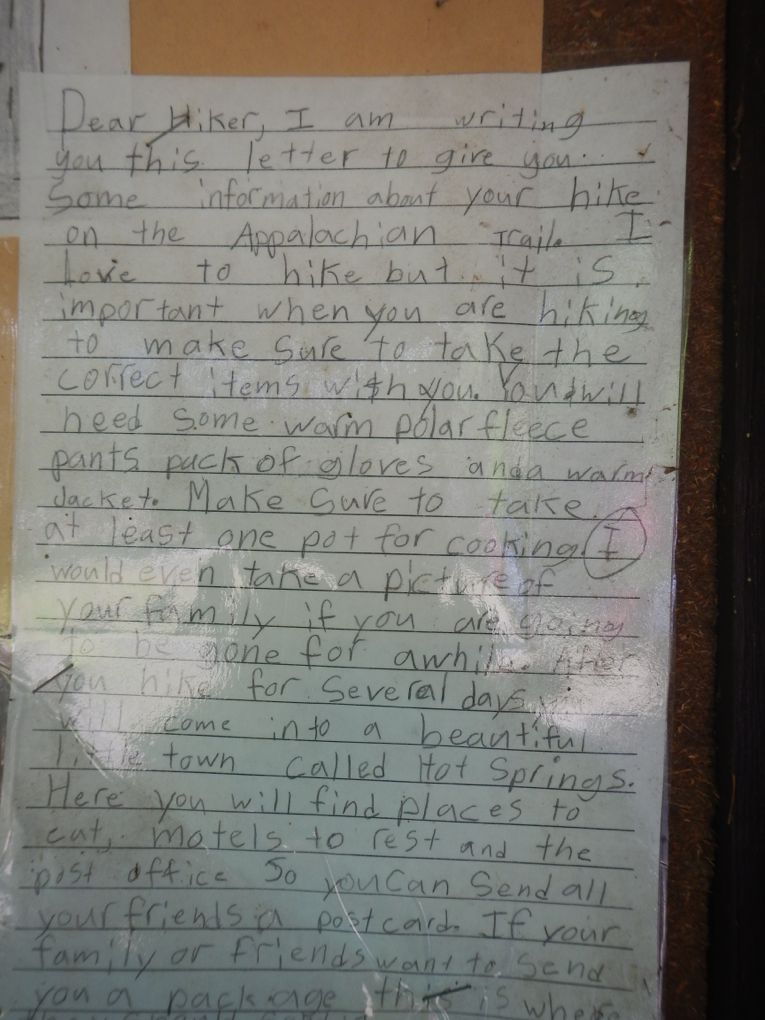 Dear Hiker, I am writing
you this letter to give you
some information about your hike
on the Appalachian Trail. I
Love to hike but it is
important when you are hiking
to make sure to take the
correct items with you. You will
need some warm polar fleece
pants pack of gloves and a warm
Jacket. Make sure to take
at least one pot for cooking. I
would even take a picture of
your family if you are going
to be gone for awhile. After
you hike for several days you
will come into a beautiful
little town called Hot Springs.
Here you will find places to
eat, motels to rest and the
post office So you can Send all
your friends a postcard. If your
family or friends want to Send
you a package this is where